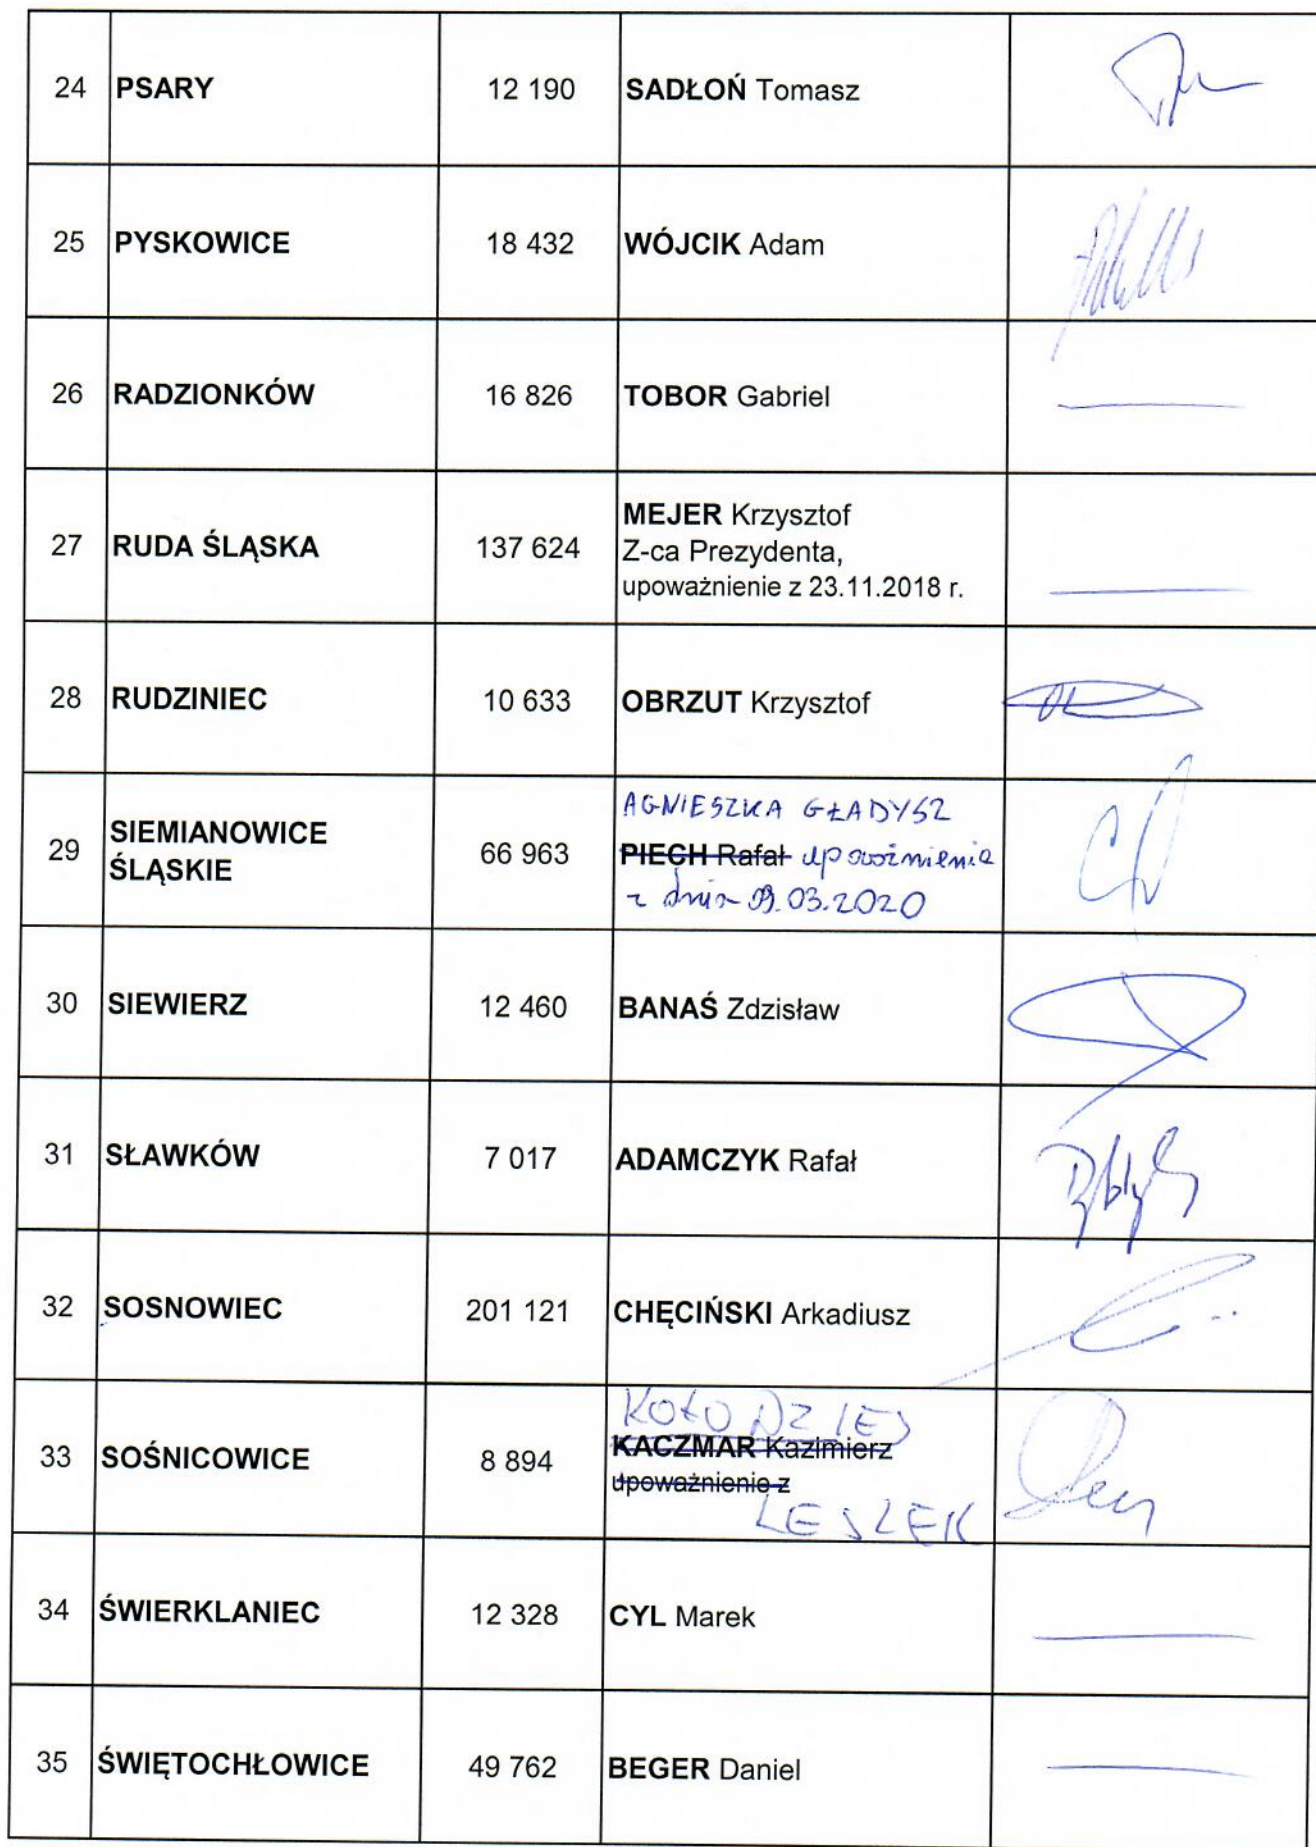 24 PSARY 12 190 SADŁOŃ Tomasz
25 PYSKOWICE 18 432 WÓJCIK Adam
26 RADZIONKÓW 16 826 TOBOR Gabriel
27 RUDA ŚLĄSKA 137 624 MEJER Krzysztof
Z-ca Prezydenta,
upoważnienie z 23.11.2018 r.
28 RUDZINIEC 10 633 OBRZUT Krzysztof
AGNIESZKA GŁADYSZ
29 SIEMIANOWICE ŚLĄSKIE 66 963 PIECH Rafał upoważnienie
z dnia 09.03.2020
30 SIEWIERZ 12 460 BANAŚ Zdzisław
31 SŁAWKÓW 7 017 ADAMCZYK Rafał
32 SOSNOWIEC 201 121 CHĘCIŃSKI Arkadiusz
KOŁODZIEJ
33 SOŚNICOWICE 8 894 KACZMAR Kazimierz
upoważnienie z
LESZEK
34 ŚWIERKLANIEC 12 328 CYL Marek
35 ŚWIĘTOCHŁOWICE 49 762 BEGER Daniel